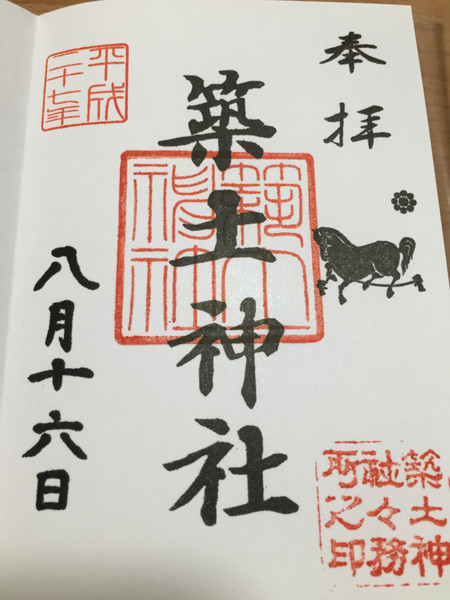 奉拝
築土神社
平成
二十七年
八月十六日
築土神
社々務
所之印